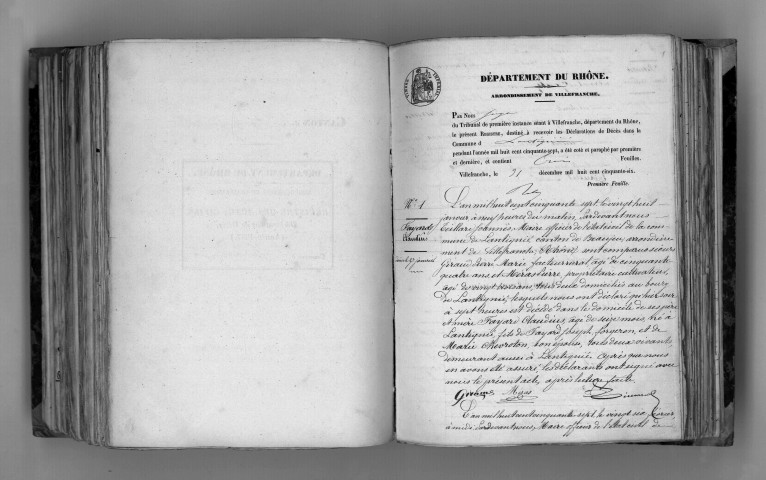 DÉPARTEMENT DU RHÔNE.
ARRONDISSEMENT DE VILLEFRANCHE.
Par Nous Juge
du Tribunal de première instance séant à Villefranche, département du Rhône,
le présent Registre, destiné à recevoir les Déclarations de Décès dans la
Commune d Lantignié
pendant l'année mil huit cent cinquante-sept, a été coté et paraphé par première
et dernière, et contient Feuilles.
Villefranche, le 31 décembre mil huit cent cinquante-six.
Première Feuille.
N° 1
Fayard
Claudius
L'an mil huit cent cinquante sept le vingt huit
janvier à neuf heures du matin, pardevant nous
Joannès, Maire officier de l'état civil de la com-
mune de Lantignié, canton de Beaujeu, arrondisse-
ment de Villefranche, Rhône, sont comparus sieurs
Giraud Pierre Marie, facteur rural, âgé de cinquante
quatre ans et Pierre, propriétaire cultivateur,
âgé de vingt ans, tous deux domiciliés au bourg
de Lantignié, lesquels nous ont déclaré qu'hier soir
à sept heures est décédé dans le domicile de ses père
et mère Fayard Claudius, âgé de seize mois, né à
Lantignié, fils de Fayard Joseph, forgeron, et de
Marie, son épouse, tous deux vivants
demeurant aussi à Lantignié. Après que nous
en avons été assuré, les déclarants ont signé avec
nous le présent acte, après lecture faite.
L'an mil huit cent cinquante-sept le vingt
à midi pardevant nous, Maire officier de l'état civil de